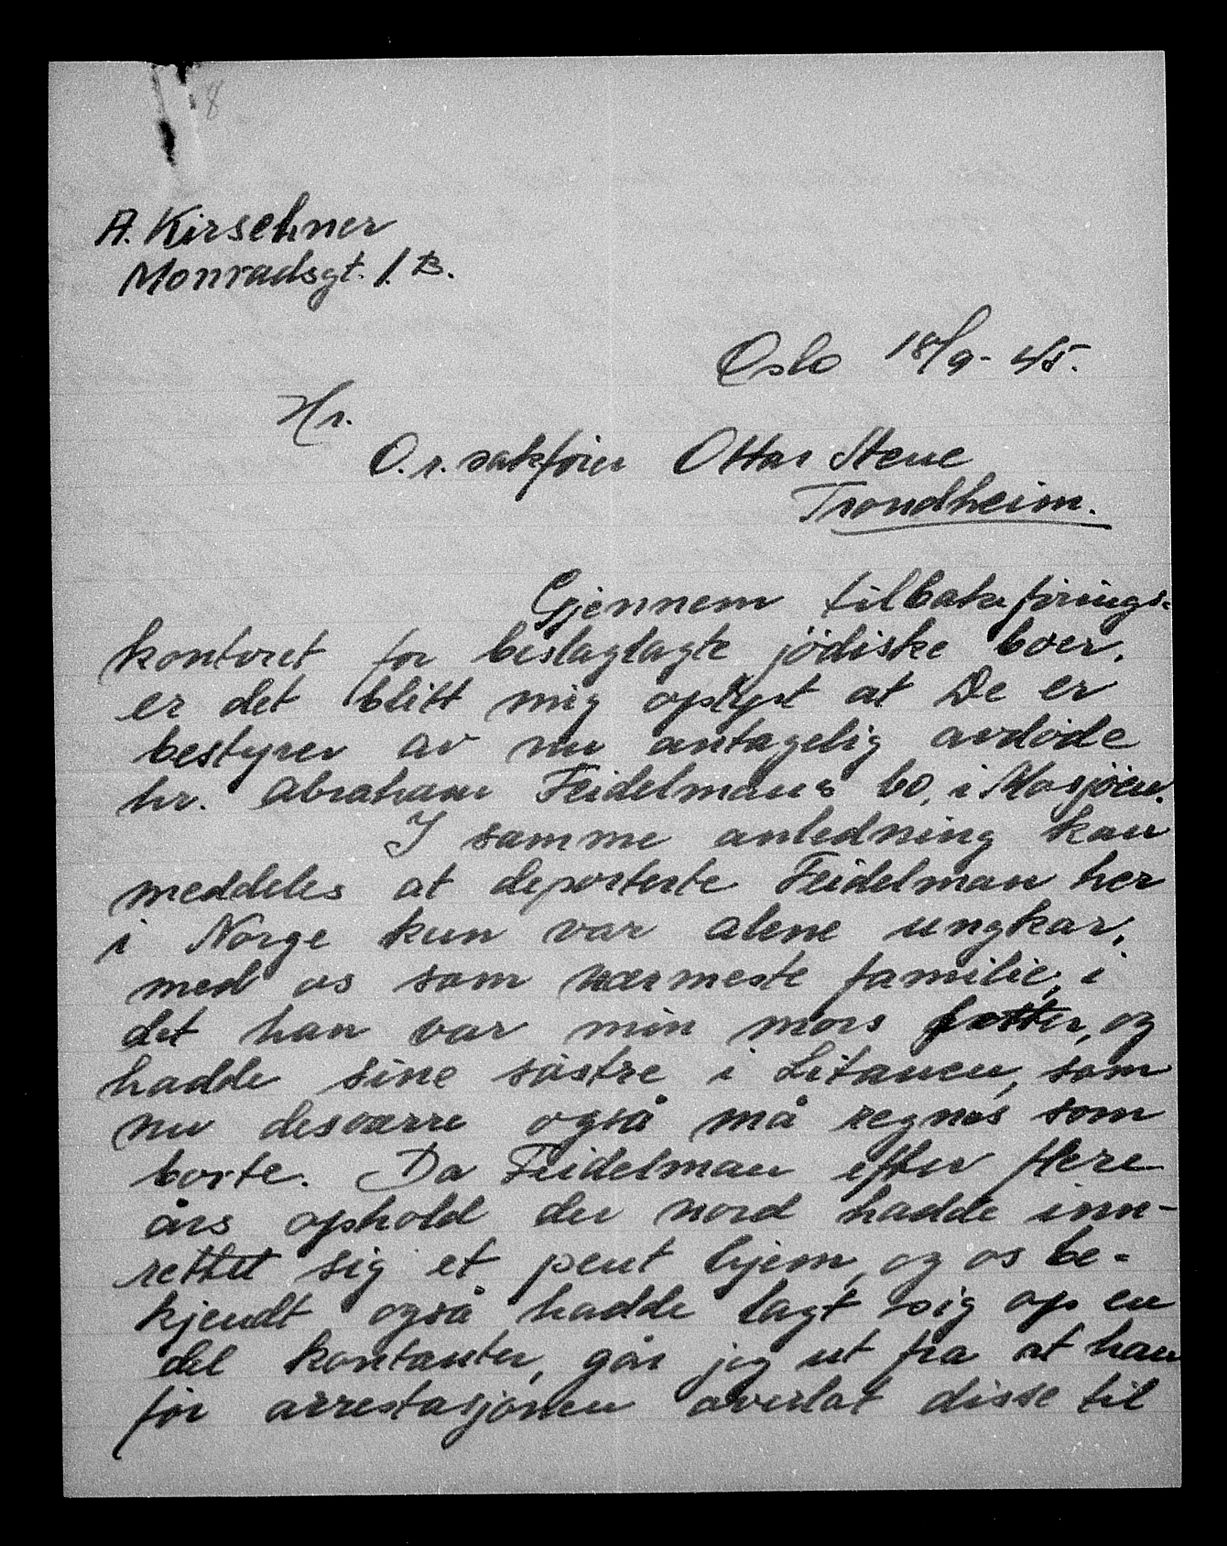 8
A. Kirschner
Monradsgt. 1. B.
Oslo 18/9- 45.
Hr.
O.r. sakfører Ottar Stene
Trondheim.
Gjennem tilbakeførings-
kontoret for beslaglagte jödiske boer,
er det blitt mig oplyst at De er
bestyrer av nu antagelig avdöde
hr. Abraham Feidelmans bo, i Mosjöen.
I samme anledning kan
meddeles at deporterte Feidelman her
i Norge kun var alene ungkar,
med os som nærmeste familie, i
det han var min mors fetter, og
hadde sine söstre i Litauen, som
nu desværre også må regnes som
borte. Da Feidelman efter flere
års ophold der nord hadde inn-
rettet sig et pent hjem, og os be-
kjendt også hadde lagt sig op en
del kontanter, går jeg ut fra at han
för arrestasjonen overlot disse til